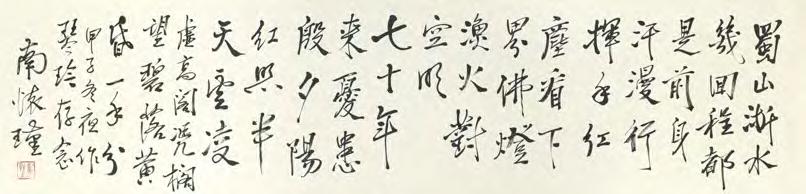 蜀山漸水
幾回程都
是前身
汗漫行
揮手紅
塵看下
界佛燈
漁火對
空明
七十年
来憂患
殷夕陽
紅照半
天雲凌
虛高閣凭欄
望碧落黄
昏一手分
甲子冬夜作
琴玲存念
南懷瑾